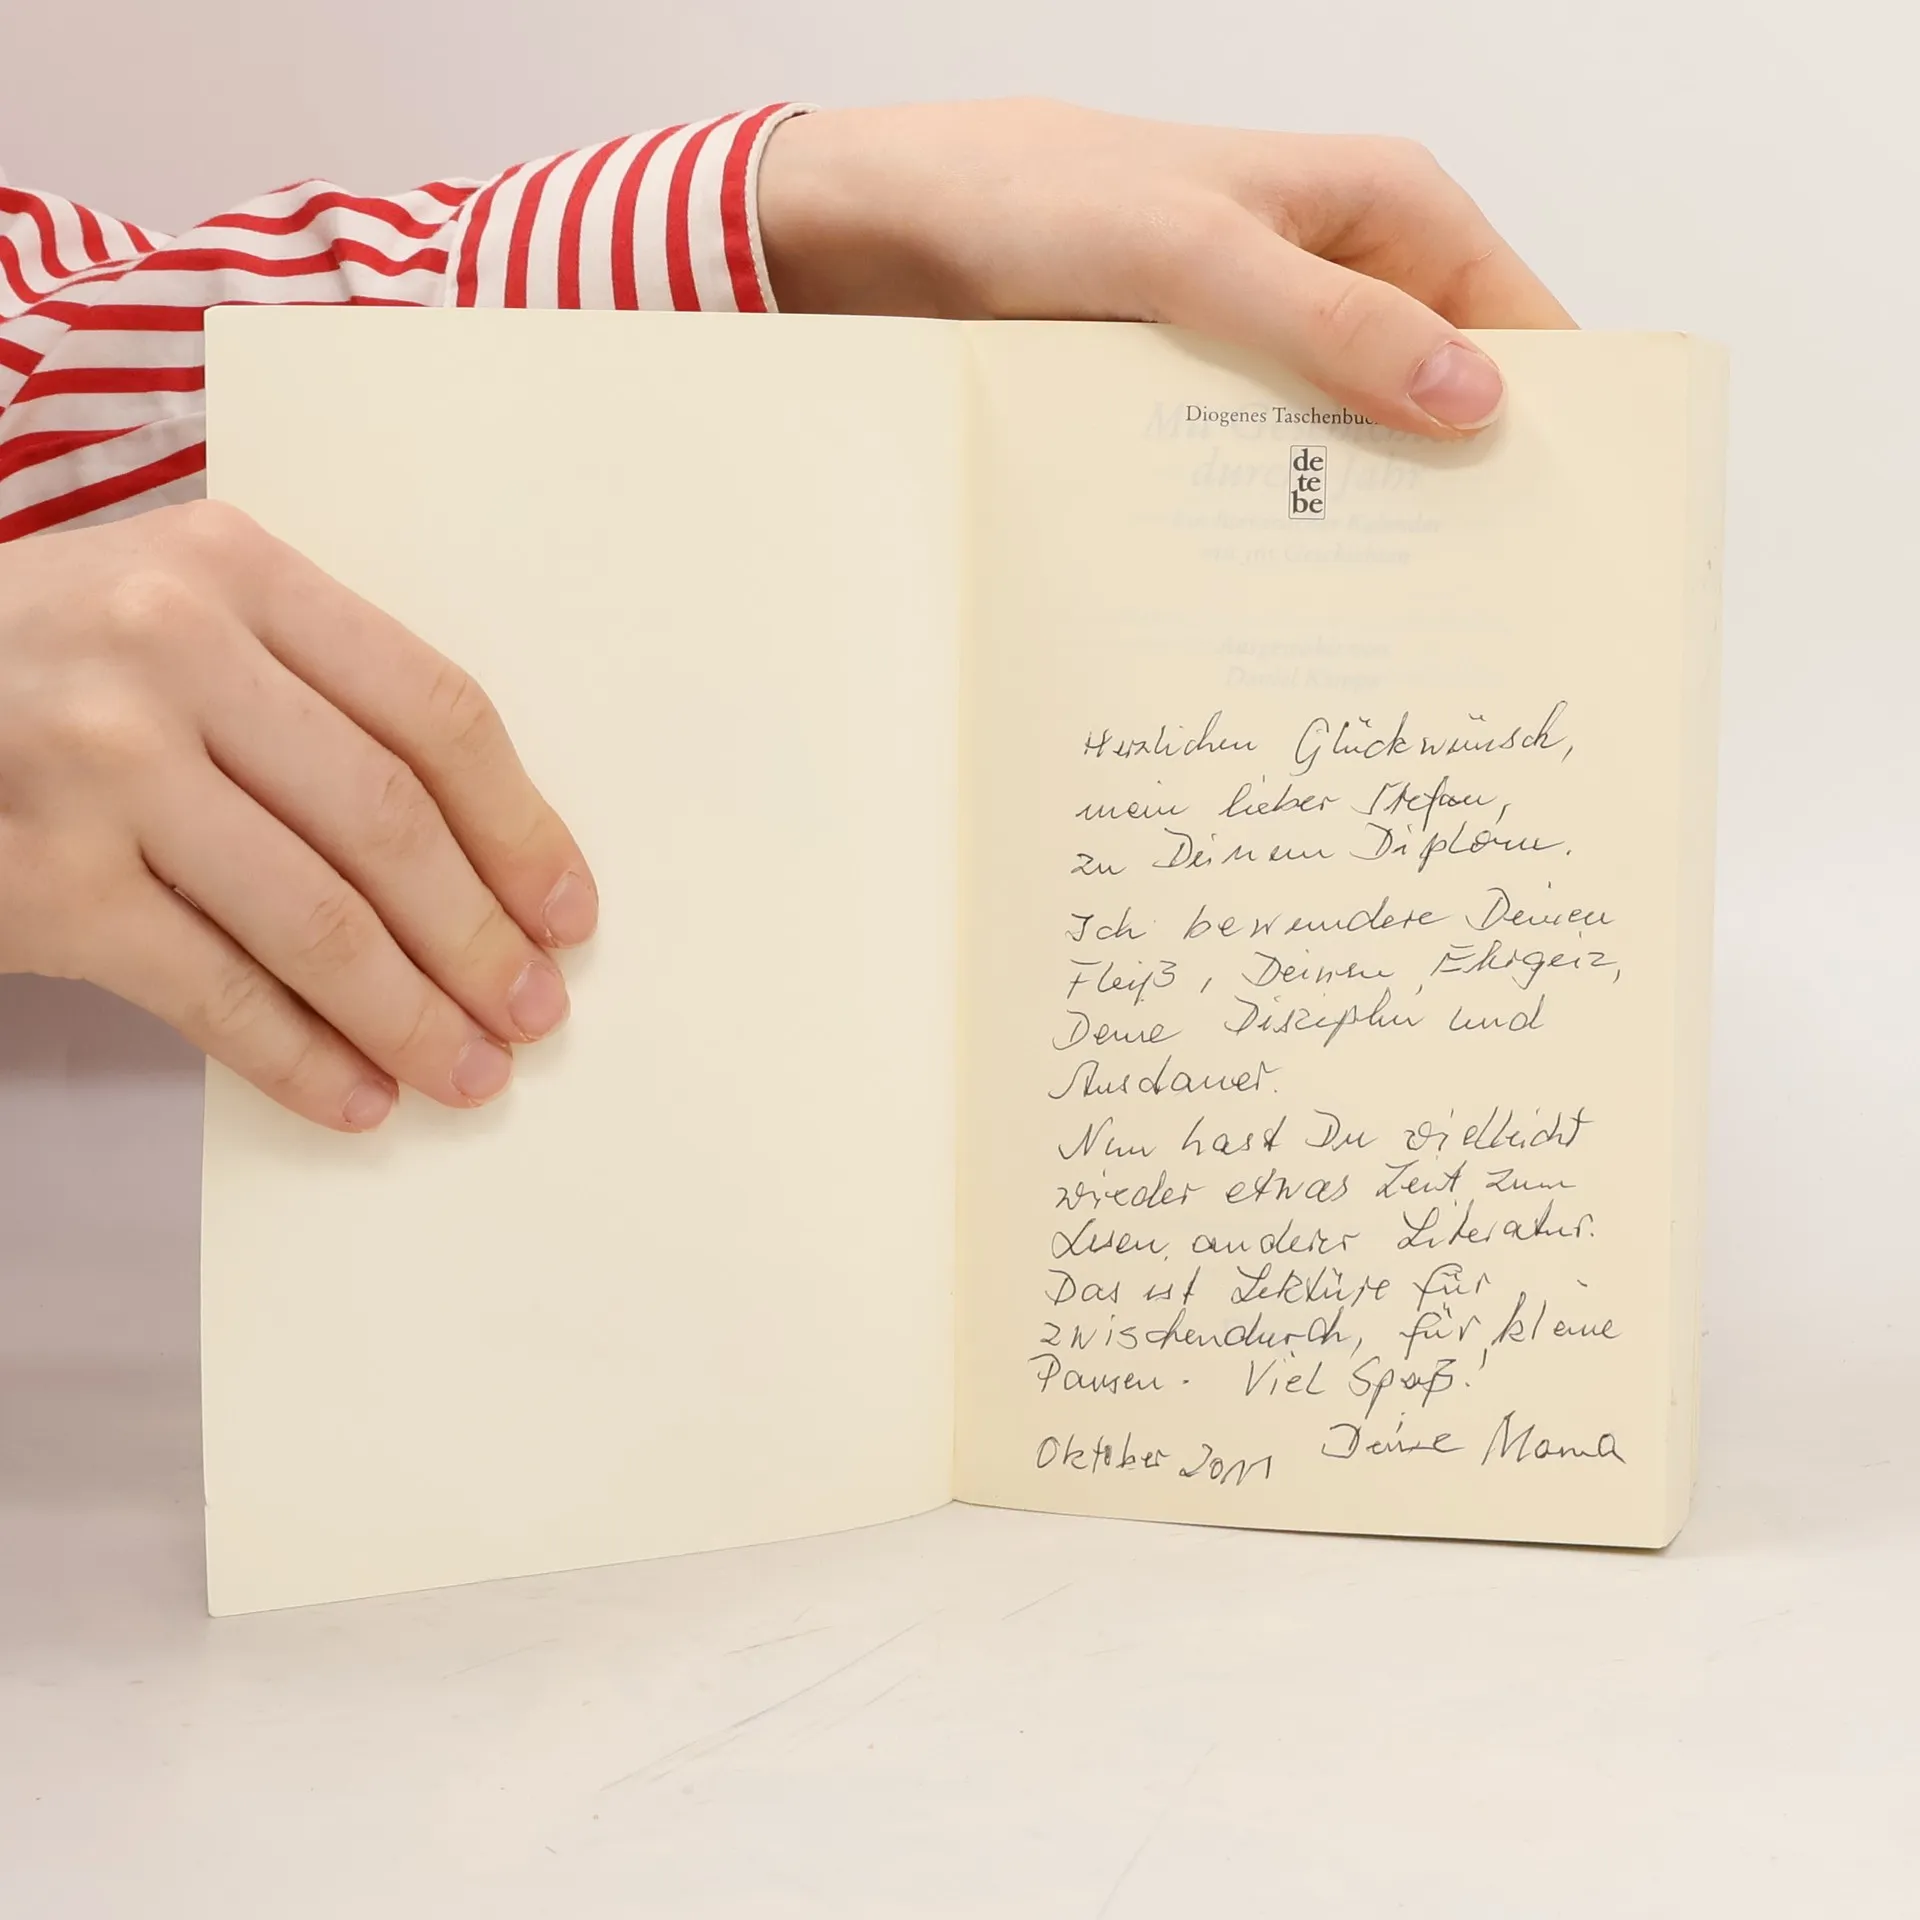 Diogenes Taschenbuc
de
te
be
Mit Geschichten
durchs Jahr
Daniel Kampa
Herzlichen Glückwünsch,
mein lieber Stefan,
zu Deinem Diplom.
Ich bewundere Deinen
Fleiß, Deinen Ehrgeiz,
Deine Disziplin und
Ausdauer.
Nun hast Du vielleicht
wieder etwas Zeit zum
Lesen anderer Literatur.
Das ist Lektüre für
zwischendurch, für kleine
Pausen. Viel Spaß!
Oktober 2011 Deine Mama